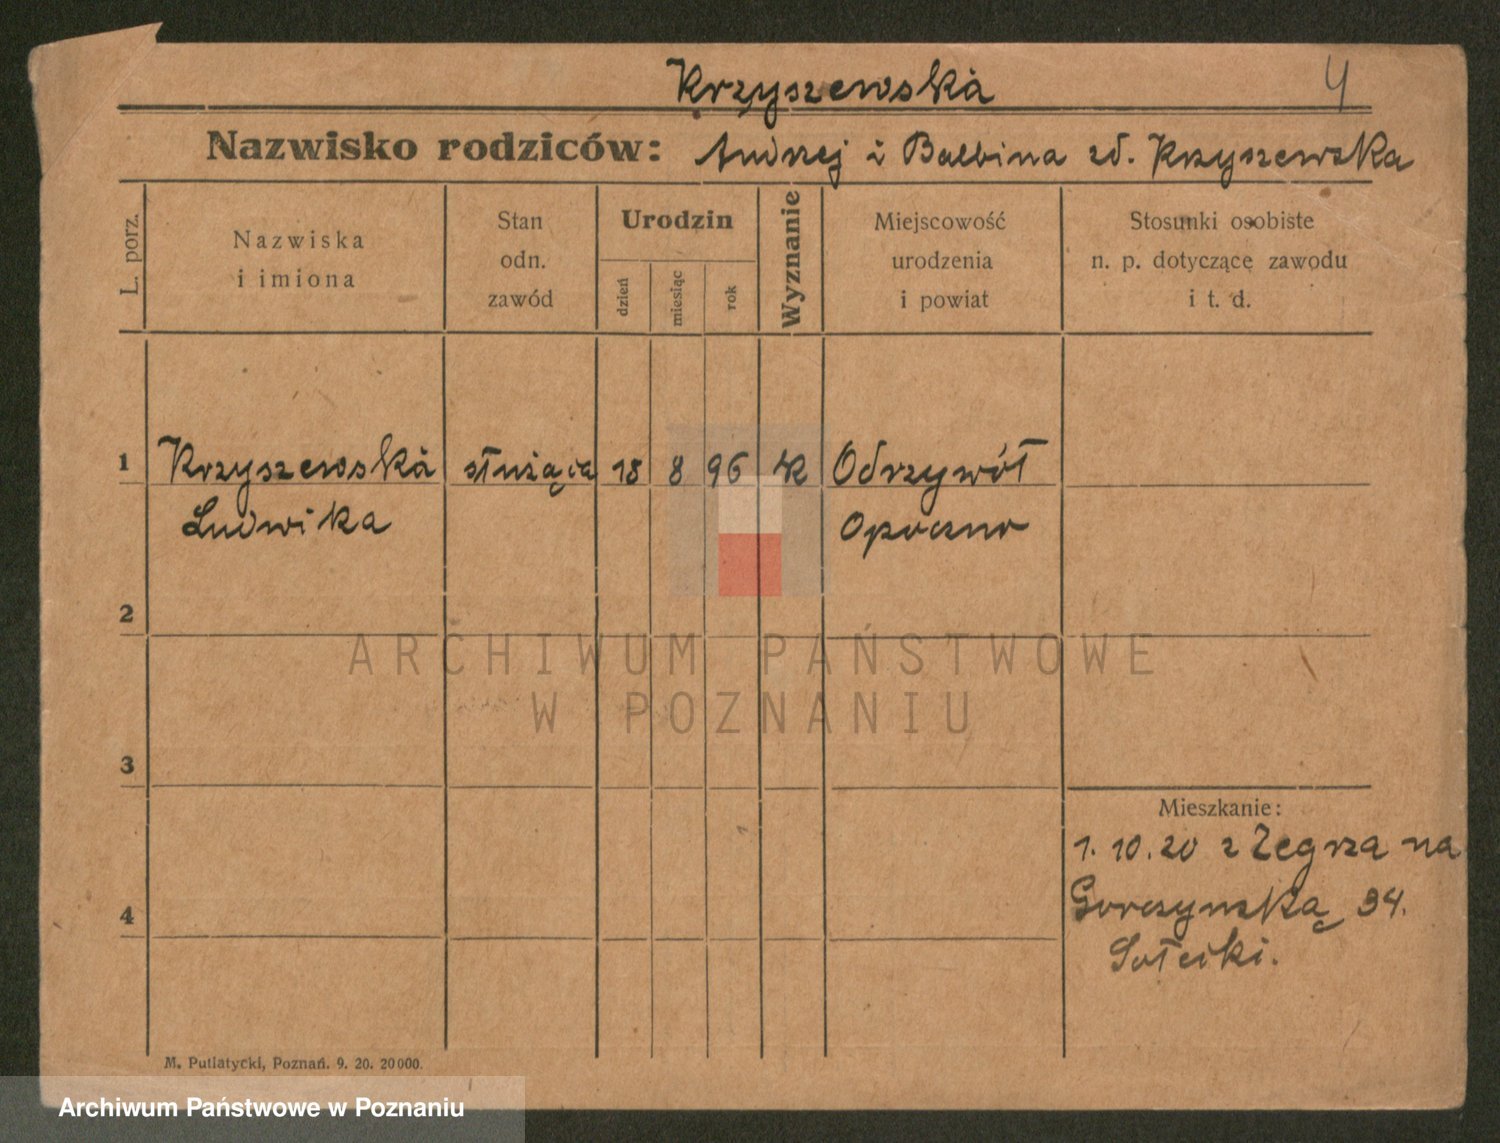 Krzyszewska 4
Nazwisko rodziców: Andrzej i Balbina zd. Krzyszewska
L. porz.
Nazwiska
i imiona
Stan
odn.
zawód
Urodzin
dzień
miesiąc
rok
Wyznanie
Miejscowość
urodzenia
i powiat
Stosunki osobiste
n. p. dotyczące zawodu
i t. d.
1 Krzyszewska służąca 18 8 96 rk Odrzywół
Ludwika Opoczno
2
ARCHIWUM PAŃSTWOWE
W POZNANIU
3
Mieszkanie:
1. 10. 20 z Zegrza na
Gorczyńską 34.
4
M. Putiatycki, Poznań. 9. 20. 20000.
Archiwum Państwowe w Poznaniu